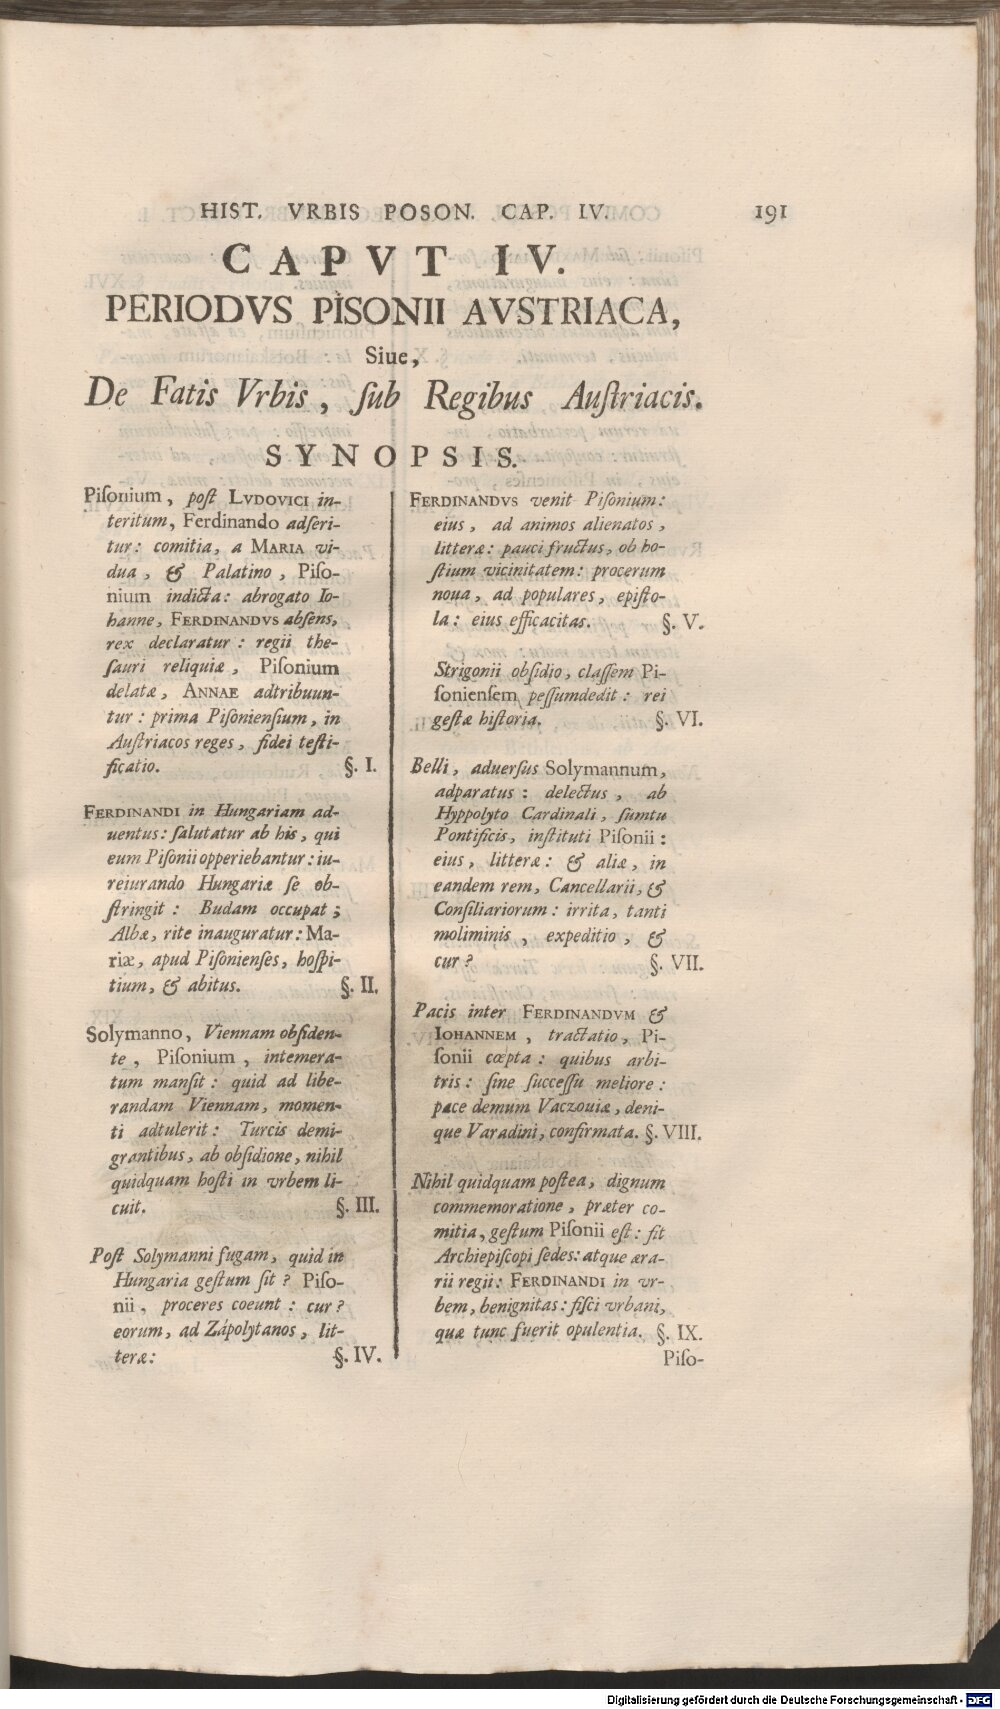 HIST. VRBIS POSON. CAP. IV. 191
CAPVT IV.
PERIODVS PISONII AVSTRIACA,
Siue,
De Fatis Vrbis, ſub Regibus Auſtriacis.
SYNOPSIS.
Piſonium, poſt LVDOVICI in-
teritum, Ferdinando adſeri-
tur: comitia, a MARIA vi-
dua, & Palatino, Piſo-
nium indicta: abrogato Io-
hanne, FERDINANDVS abſens,
rex declaratur: regii the-
ſauri reliquiæ, Piſonium
delatæ, ANNAE adtribuun-
tur: prima Piſonienſium, in
Auſtriacos reges, fidei teſti-
ficatio. §. I.
FERDINANDI in Hungariam ad-
uentus: ſalutatur ab his, qui
eum Piſonii opperiebantur: iu-
reiurando Hungariæ ſe ob-
ſtringit: Budam occupat;
Albæ, rite inauguratur: Ma-
riæ, apud Piſonienſes, hoſpi-
tium, & abitus. §. II.
Solymanno, Viennam obſiden-
te, Piſonium, intemera-
tum manſit: quid ad libe-
randam Viennam, momen-
ti adtulerit: Turcis demi-
grantibus, ab obſidione, nihil
quidquam hoſti in vrbem li-
cuit. §. III.
Poſt Solymanni fugam, quid in
Hungaria geſtum ſit? Piſo-
nii, proceres coeunt: cur?
eorum, ad Zápolytanos, lit-
teræ: §. IV.
FERDINANDVS venit Piſonium:
eius, ad animos alienatos,
litteræ: pauci fructus, ob ho-
ſtium vicinitatem: procerum
noua, ad populares, epiſto-
la: eius efficacitas. §. V.
Strigonii obſidio, claſſem Pi-
ſonienſem peſſumdedit: rei
geſtæ hiſtoria. §. VI.
Belli, aduerſus Solymannum,
adparatus: delectus, ab
Hyppolyto Cardinali, ſumtu
Pontificis, inſtituti Piſonii:
eius, litteræ: & aliæ, in
eandem rem, Cancellarii, &
Conſiliariorum: irrita, tanti
moliminis, expeditio, &
cur? §. VII.
Pacis inter FERDINANDVM &
IOHANNEM, tractatio, Pi-
ſonii cœpta: quibus arbi-
tris: ſine ſucceſſu meliore:
pace demum Vaczouiæ, deni-
que Varadini, confirmata. §. VIII.
Nihil quidquam poſtea, dignum
commemoratione, præter co-
mitia, geſtum Piſonii eſt: fit
Archiepiſcopi ſedes: atque æra-
rii regii: FERDINANDI in vr-
bem, benignitas: fiſci vrbani,
quæ tunc fuerit opulentia. §. IX.
Piſo-
Digitalisierung gefördert durch die Deutsche Forschungsgemeinschaft - DFG